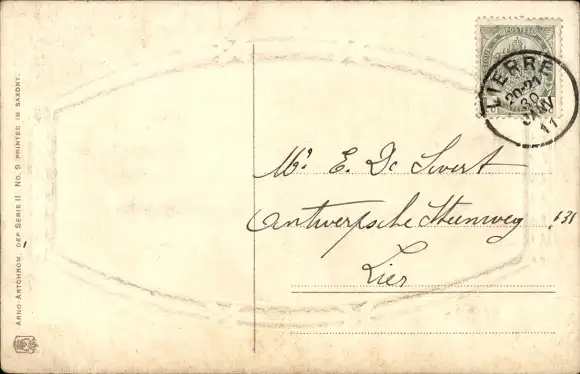 POSTES
LIERRE
20-21
30
JANV
11
Mr. E. De Swert
Antwerpsche Steenweg, 131
Lier
ARNO-ARTCHROM. DEP SERIE II NO. 9 PRINTED IN SAXONY.